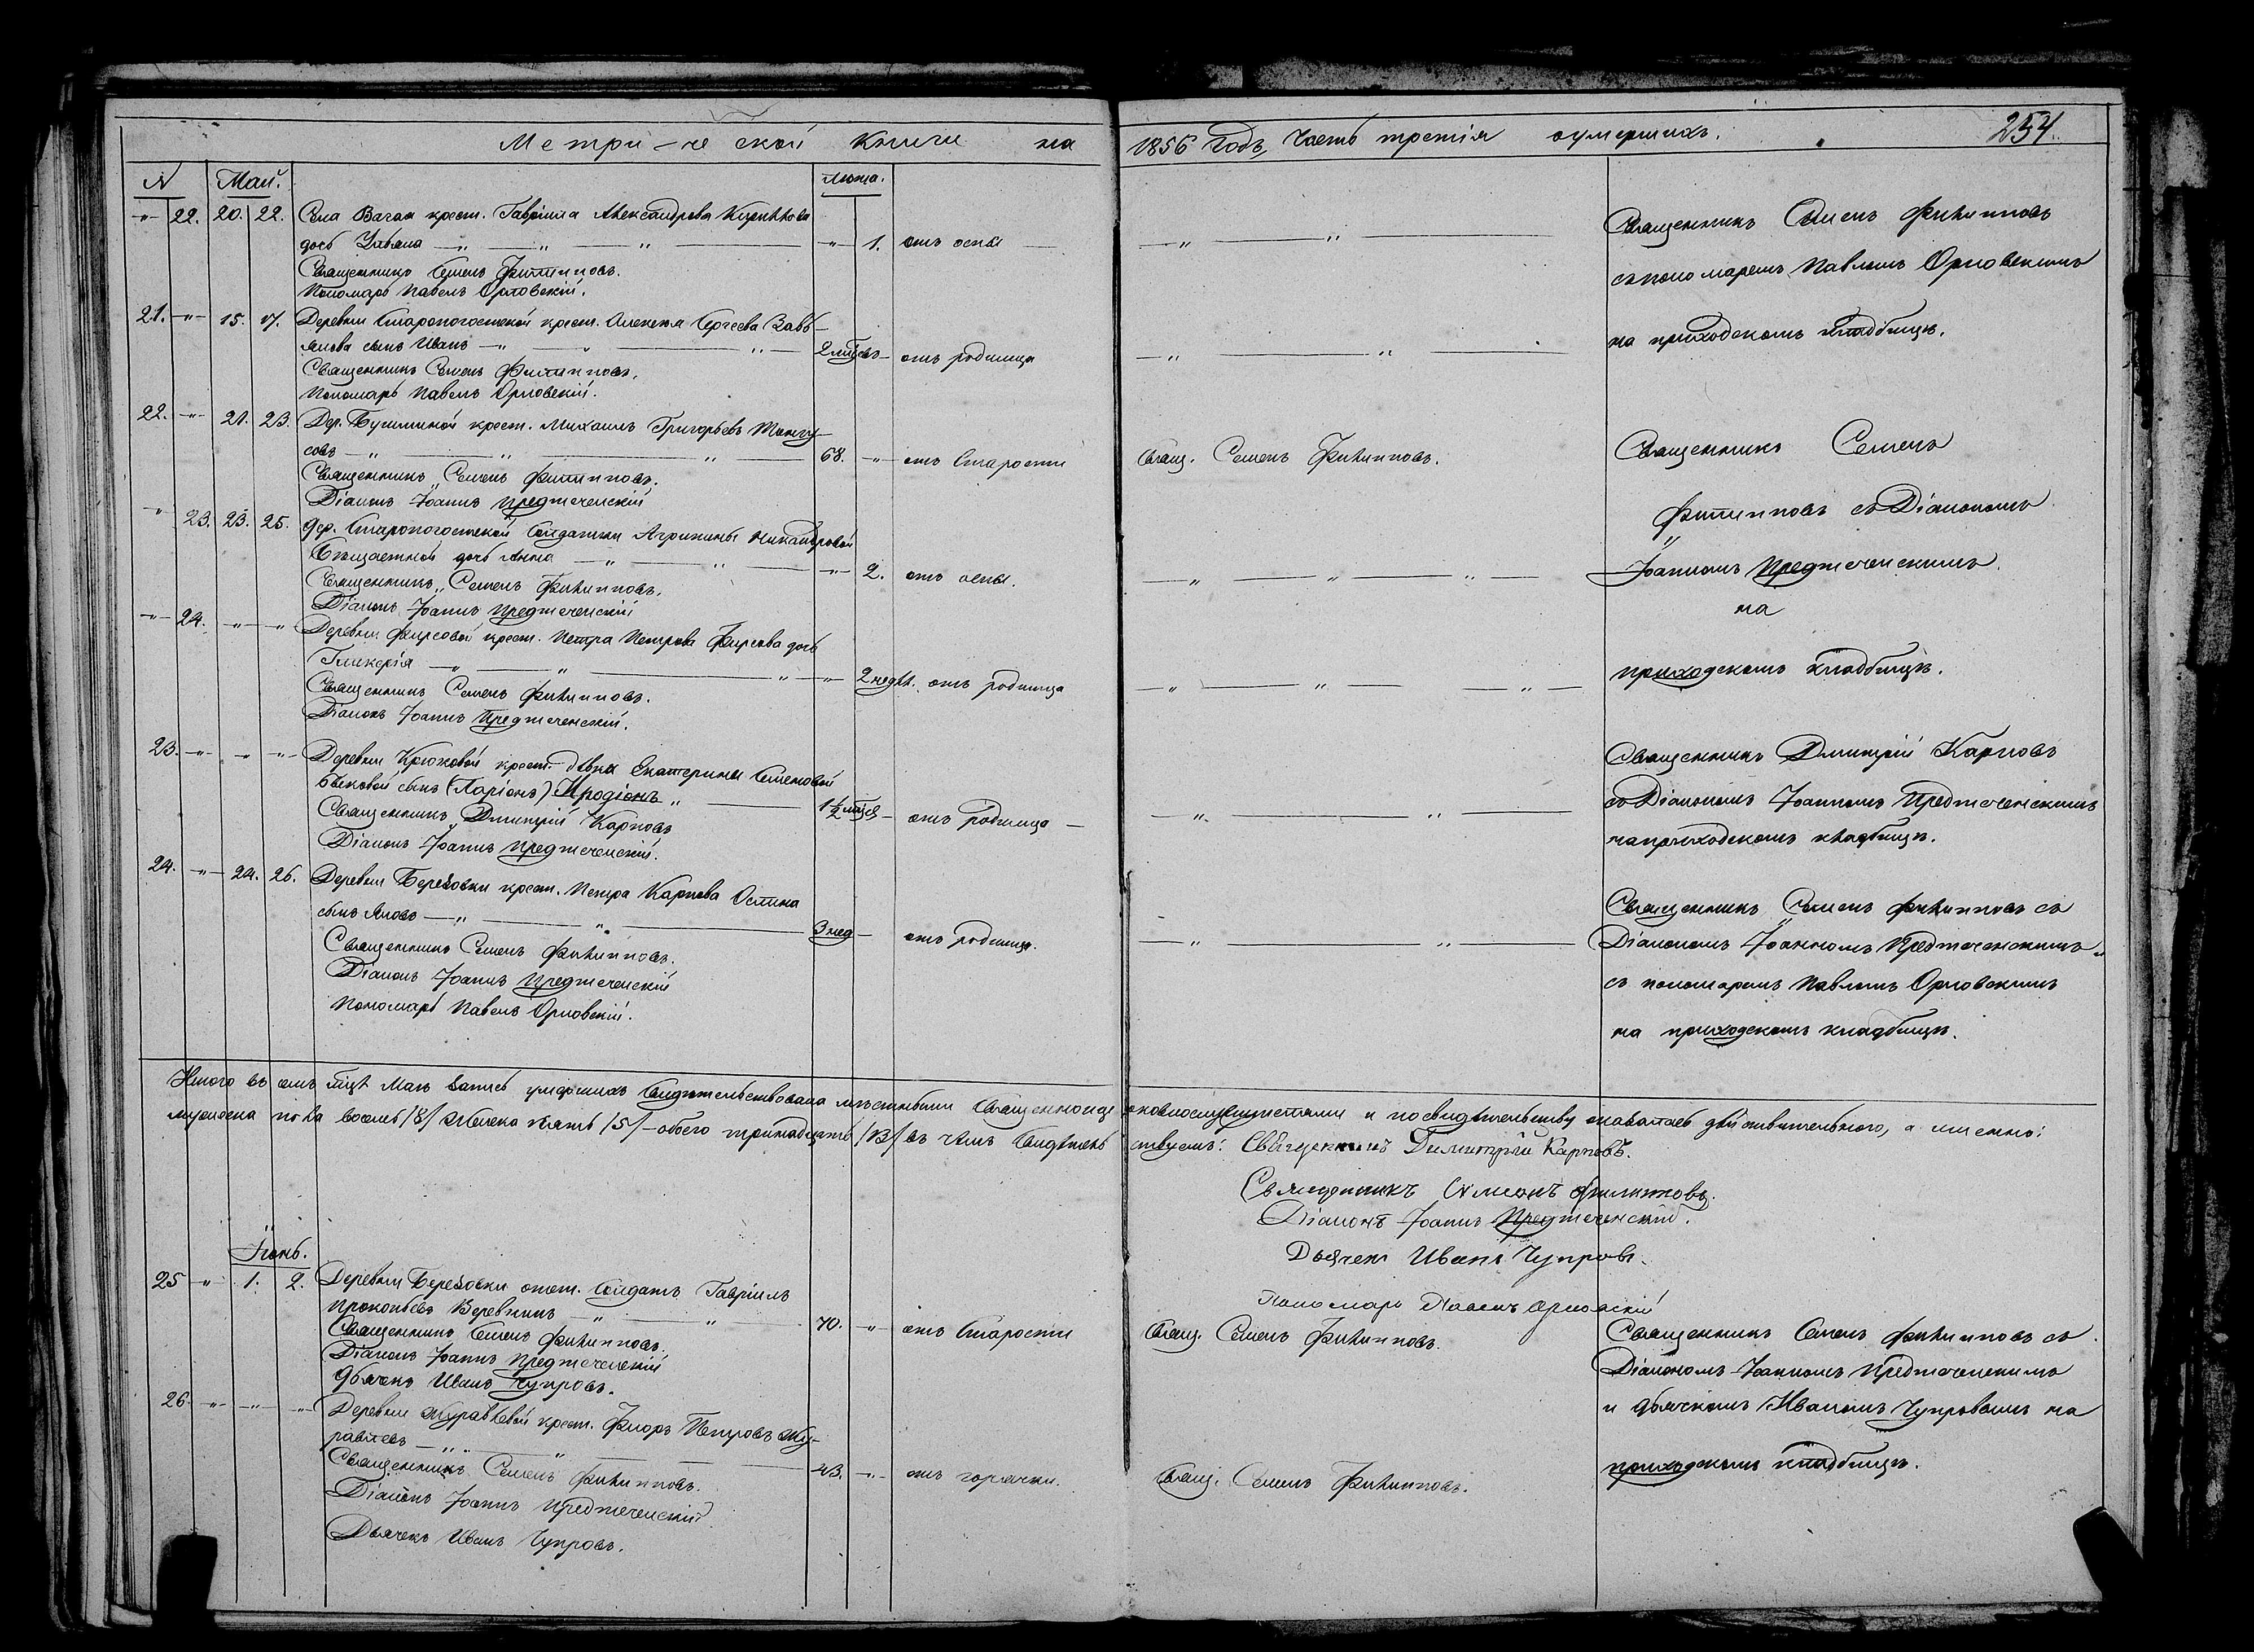 Метри-ческой книги на 1856 Годъ, Часть третія оумершихъ. 254.
N Май. Лѣта.
-"- 22. 20. 22. Села Вагая крест. Гавріила Александрова
дочь -"- 1. отъ оспы
Священникъ Семенъ Филипповъ.
Пономарь Павелъ Орловскій.
Священникъ Семенъ Филипповъ
съ пономаремъ Павломъ Орловскимъ
на приходскомъ кладбищѣ.
21. -"- 15. 17. Деревни Старопогостской крест. Алексѣя Сергѣева Завь-
ялова сынъ Иванъ -"- 2 мѣся- отъ родимца
Священникъ Семенъ Филипповъ.
Пономарь Павелъ Орловскій.
22. -"- 21. 23. Дер. крест. Михаилъ Григорьевъ
совъ -"- 68. -"- отъ Старости Свящ. Семенъ Филипповъ.
Священникъ Семенъ Филипповъ.
Діаконъ Іоаннъ Предтеченскій
Священникъ Семенъ
Филипповъ съ Діакономъ
Іоанномъ Предтеченскимъ
на
приходскомъ кладбищѣ.
-"- 23. 23. 25. Дер. Старопогостской Солдатки Агрипины Никандровой
дочь Анна -"- 2. отъ оспы.
Священникъ Семенъ Филипповъ.
Діаконъ Іоаннъ Предтеченскій
-"- 24. -"- -"- Деревни Фирсовой крест. Петра Петрова Фирсова дочь
Гликерія -"- 2 недѣл. отъ родимца
Священникъ Семенъ Филипповъ.
Діаконъ Іоаннъ Предтеченскій.
23. -"- -"- -"- Деревни Крюковой крест. дѣвки Екатерины Семеновой
Быковой сынъ (Ларіонъ) Иродіонъ -"- 1½ мѣся- отъ родимца
Священникъ Дмитрій Карповъ
Діаконъ Іоаннъ Предтеченскій.
Священникъ Дмитрій Карповъ
съ Діакономъ Іоанномъ Предтеченскимъ
на приходскомъ кладбищѣ.
24. -"- 24. 26. Деревни Березовки крест. Петра Карпова Ослина
сынъ Яковъ -"- 3 нед- отъ родимца.
Священникъ Семенъ Филипповъ.
Діаконъ Іоаннъ Предтеченскій
Пономарь Павелъ Орловскій.
Священникъ Семенъ Филипповъ съ
Діакономъ Іоанномъ Предтеченскимъ и
съ пономаремъ Павломъ Орловскимъ
на приходскомъ кладбищѣ.
Итого въ семъ мѣцѣ Маѣ запись умершихъ Свидѣтельствована мѣстными Священноцерковнослужителями и по свидѣтельству оказалась дѣйствительною, а именно:
мужеска пола восемь /8/ Женска пять /5/ - обоего тринадцать /13/ въ чемъ Свидѣтельствуемъ: Священникъ Димитрій Карповъ.
Священникъ Симеонъ Филипповъ.
Діаконъ Іоаннъ Предтеченскій.
Дьячекъ Иванъ Чупровъ.
Пономарь Павелъ Орловскій
Іюнь.
25 -"- 1. 2. Деревни Березовки отст. Солдатъ Гавріилъ
Прокопьевъ Веревкинъ -"- 70. -"- отъ Старости Свящ. Семенъ Филипповъ.
Священникъ Семенъ Филипповъ.
Діаконъ Іоаннъ Предтеченскій
Дьячекъ Иванъ Чупровъ.
Священникъ Семенъ Филипповъ съ
Діакономъ Іоанномъ Предтеченскимъ
и Дьячкомъ Иваномъ Чупровымъ на
приходскомъ кладбищѣ.
26 -"- -"- -"- Деревни Журавлевой крест. Флоръ Петровъ Жу-
равлевъ -"- 23. -"- отъ горячки. Свящ. Семенъ Филипповъ.
Священникъ Семенъ Филипповъ.
Діаконъ Іоаннъ Предтеченскій
Дьячекъ Иванъ Чупровъ.